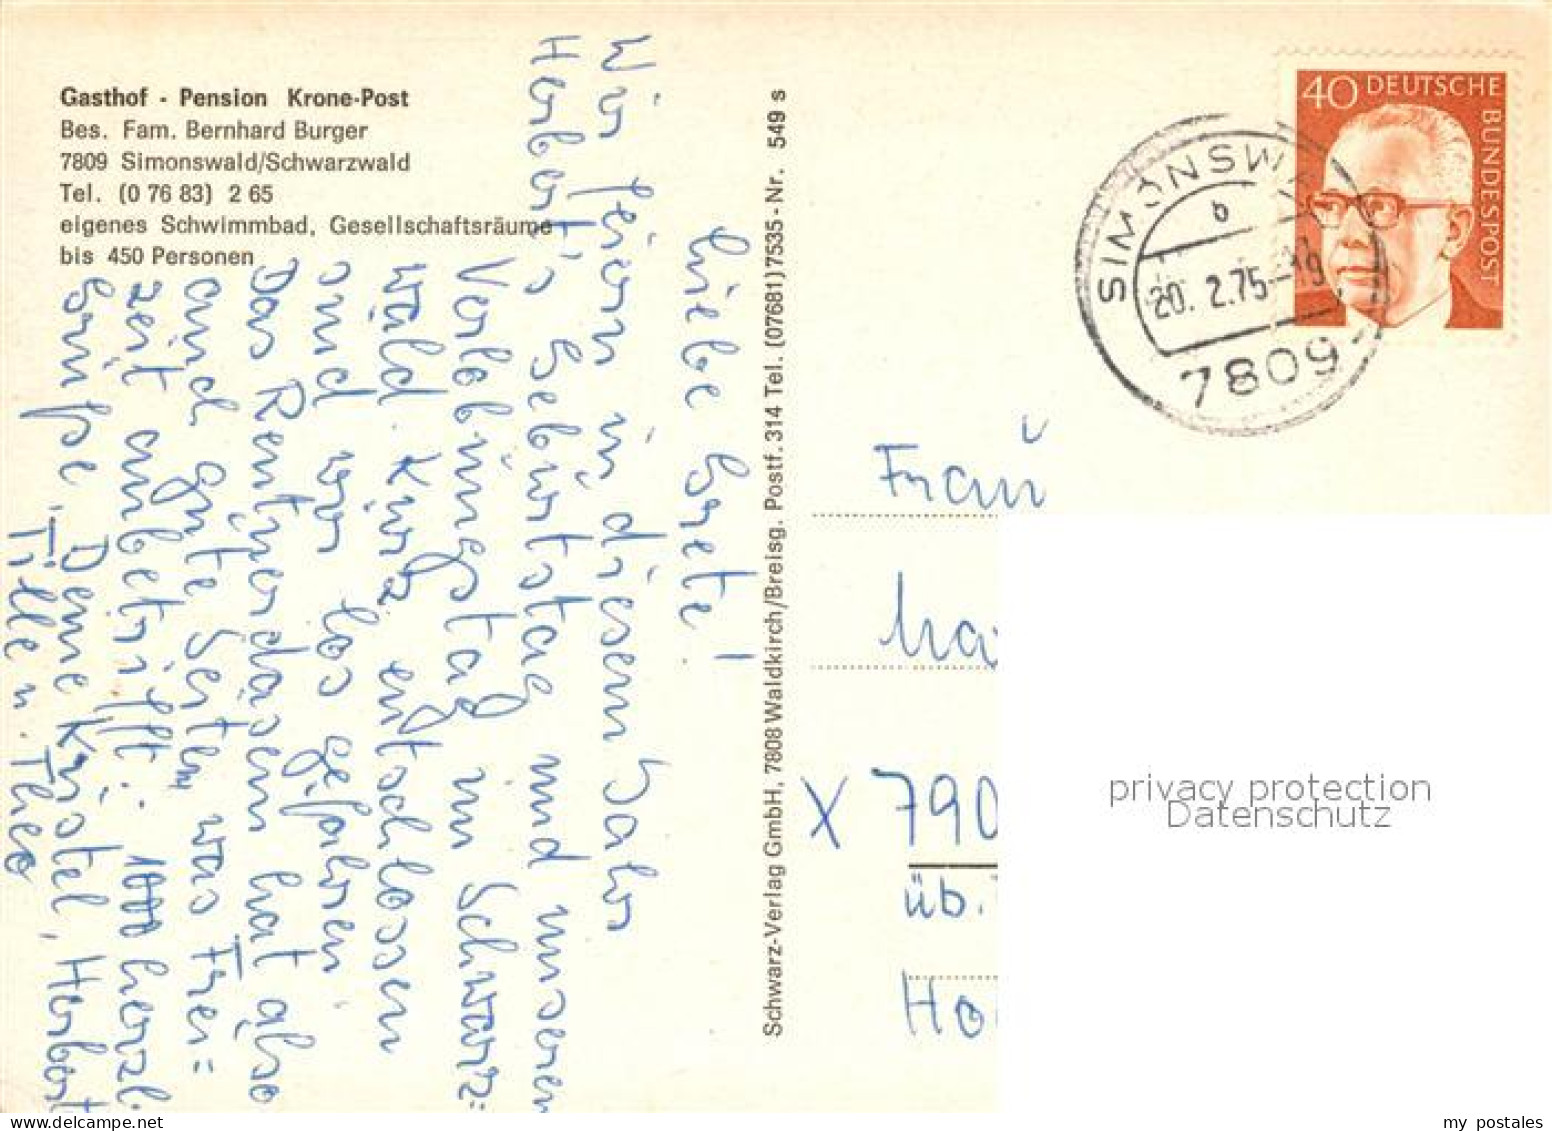 Gasthof - Pension Krone-Post
Bes. Fam. Bernhard Burger
7809 Simonswald/Schwarzwald
Tel. (0 76 83) 2 65
eigenes Schwimmbad, Gesellschaftsräume
bis 450 Personen
Liebe Grete!
Wir feiern in diesem Jahr
Herbert's Geburtstag und unseren
Verlobungstag im Schwarz=
wald. Kurz entschlossen
sind wir los gefahren.
Das Rentnerdasein hat also
auch gute Seiten, was Frei=
zeit anbetrifft. 1000 herzl.
Grüße, Deine Kristel, Herbert
Tille u. Theo
Schwarz-Verlag GmbH, 7808 Waldkirch/Breisg. Postf. 314 Tel. (07681) 7535 - Nr. 549 s
40 DEUTSCHE
BUNDESPOST
SIMONSWALD
b
20. 2.75-19
7809
Frau
X 790
üb.
privacy protection
Datenschutz
my postales